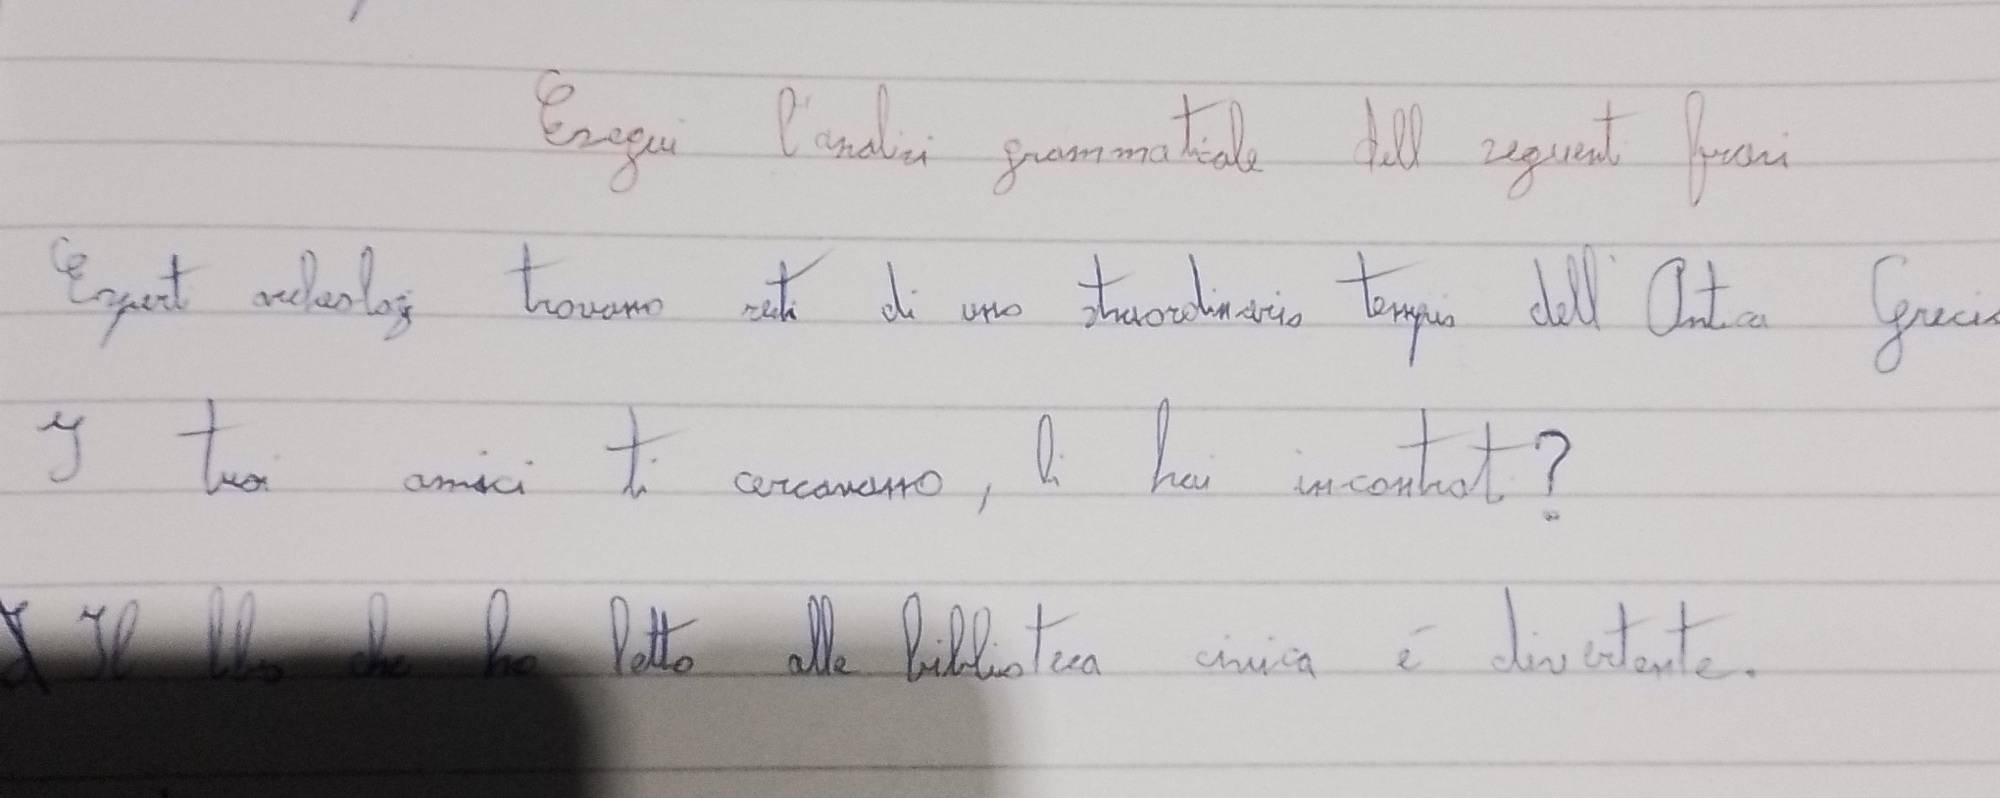 Esegui l'analisi grammaticale dell seguent frasi
Espert archeolog trovano resti di uno straordinario tempio dell'Antica Grecia
I tuoi amici ti cercavano, li hai incontrat?
Il che ho letto alla biblioteca civica è divertente.